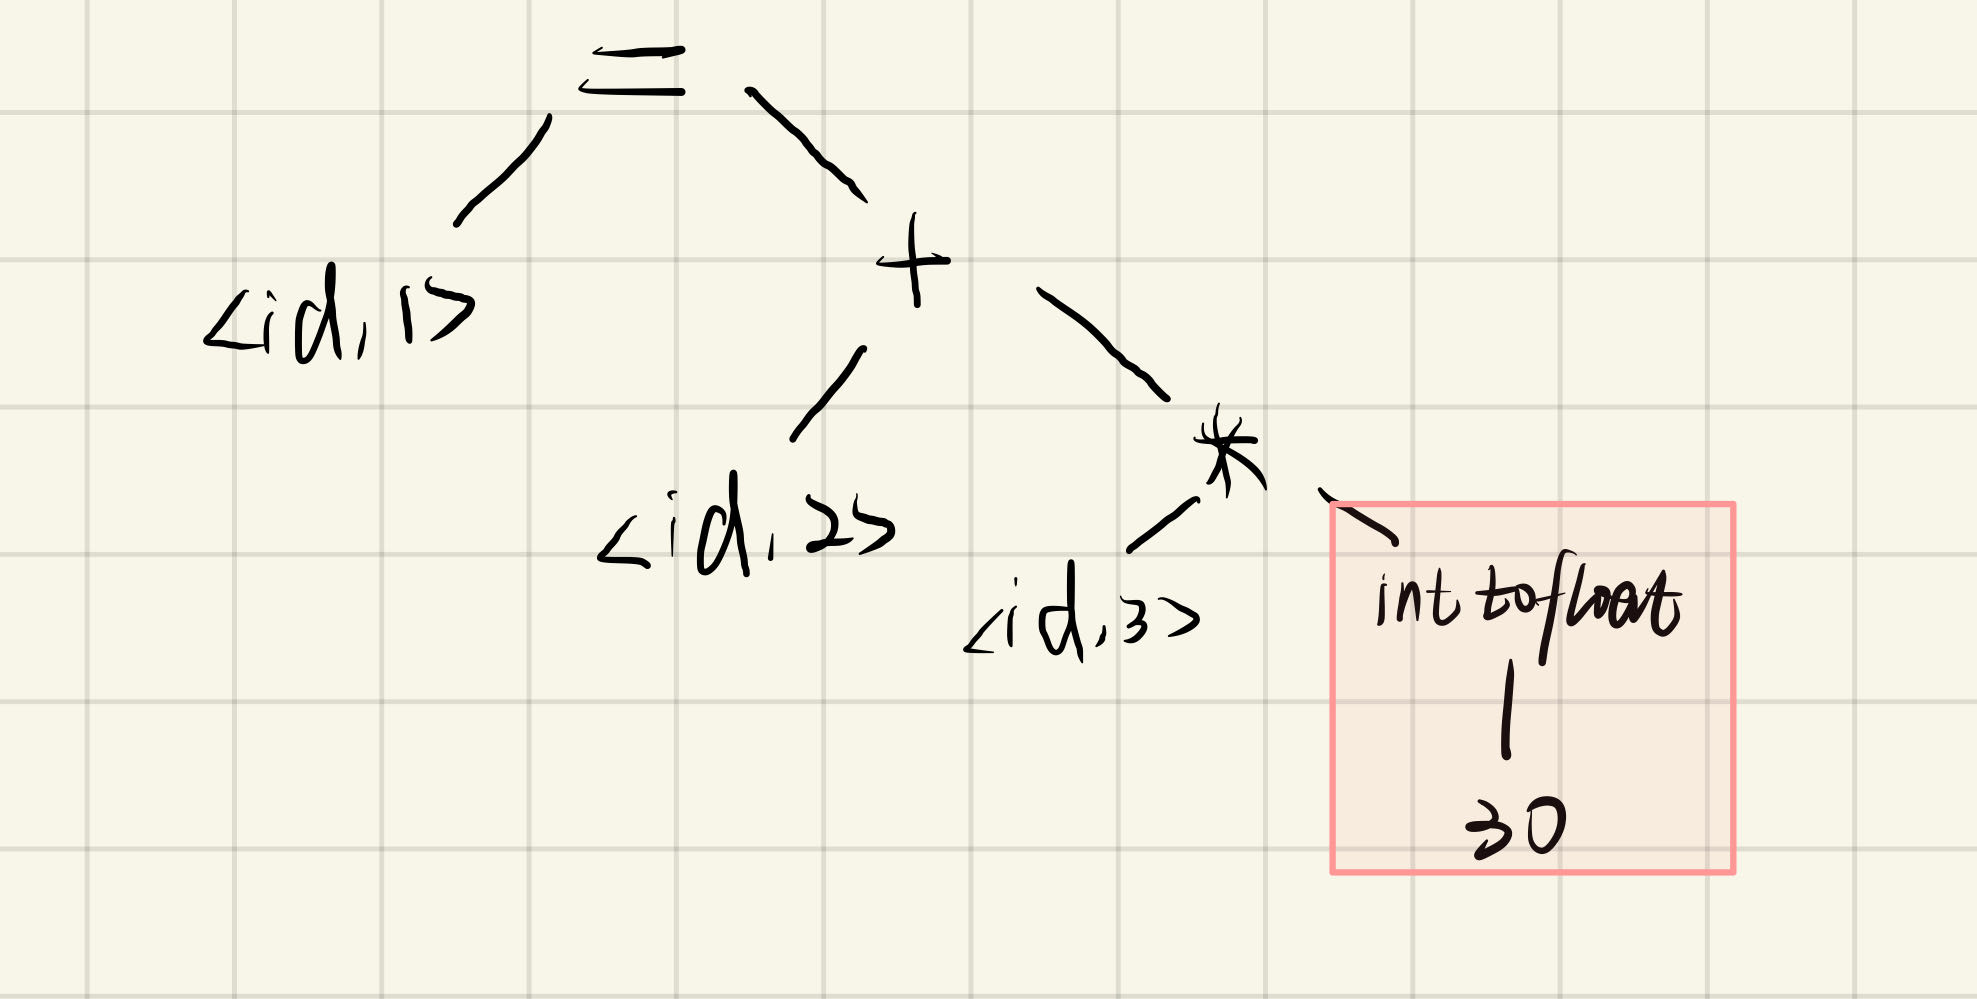 =
<id, 1>
+
<id, 2>
*
<id, 3>
int tofloat
30